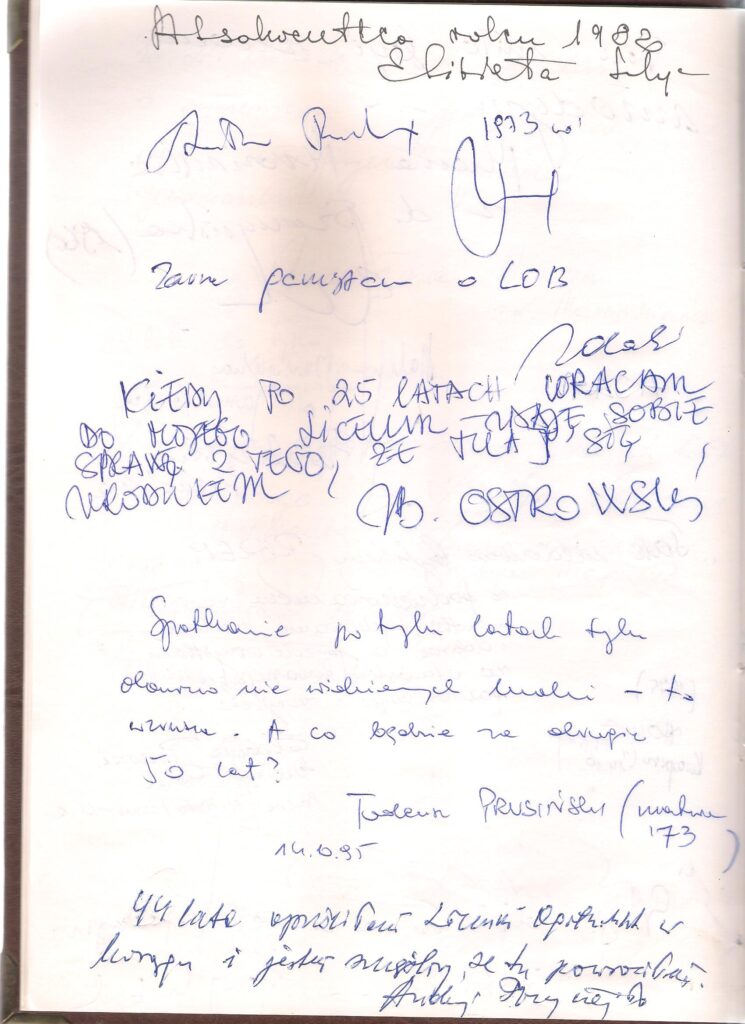 Absolwentka roku 1982
Elżbieta
1973
Zawsze pamiętam o LOB
KIEDY PO 25 LATACH WRACAM
DO MOJEGO LICEUM - ZDAJĘ SOBIE
SPRAWĘ Z TEGO, ŻE TUTAJ SIĘ
URODZIŁEM
B. OSTROWSKI
Spotkanie po tylu latach tylu
dawno nie widzianych ludzi – to
wzrusza. A co będzie za drugie
50 lat?
Tadeusz PRUSIŃSKI (matura
'73)
14.10.95
44 lata opuściłem Liceum w
i jestem szczęśliwy, że tu powróciłem.
Andrzej